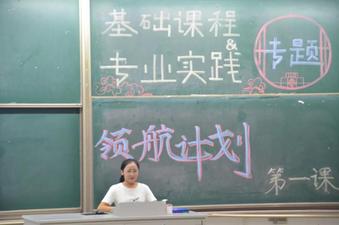 基础课程
&
专业实践
专题
领航计划
第一课